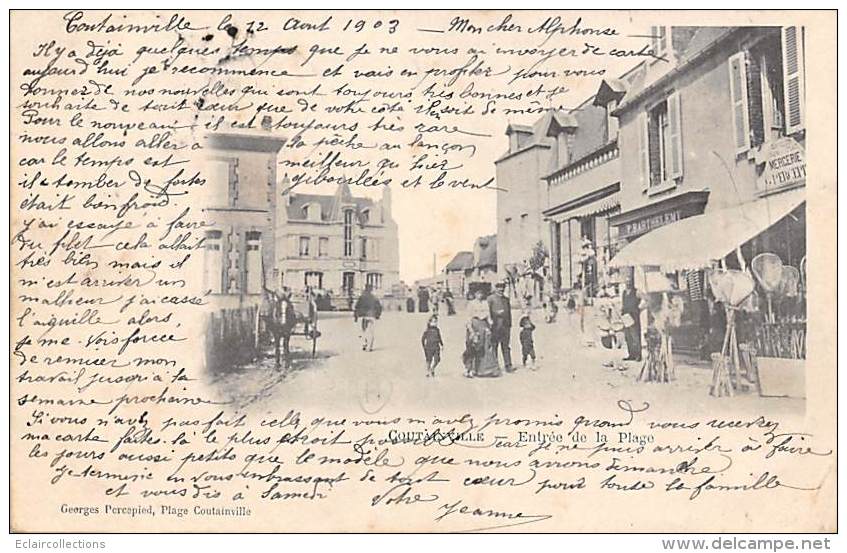 Coutainville le 12 Aout 1903 — Mon cher Alphonse —
Il y a déjà quelques temps que je ne vous ai envoyer de carte
aujourd'hui je recommence et vais en profiter pour vous
donner de nos nouvelles qui sont toujours très bonnes et je
souhaite de tout cœur que de votre côté il soit de même
Pour le nouveau il est toujours très rare
nous allons aller à la pêche au lançon
car le temps est meilleur qu'hier
il a tomber de fortes giboulées et le vent
était bon froid
j'ai essayé à faire
du filet cela allait
très bien mais il
m'est arriver un
malheur j'ai casse
l'aiguille alors,
je me vois force
de remiser mon
travail jusqu'à la
semaine prochaine
P. BARTHELEMY
MERCERIE
Si vous n'avez pas fait celle que vous m'avez promis quand vous recevrez
ma carte faites-la le plus étroit possible car je ne puis arriver à faire
les jours aussi petits que le modèle que nous avons demandé
Je termine en vous embrassant de tout cœur pour toute la famille
et vous dis à Samedi Votre Jeanne
COUTAINVILLE — Entrée de la Plage
Georges Percepied, Plage Coutainville
Eclaircollections
www.delcampe.net